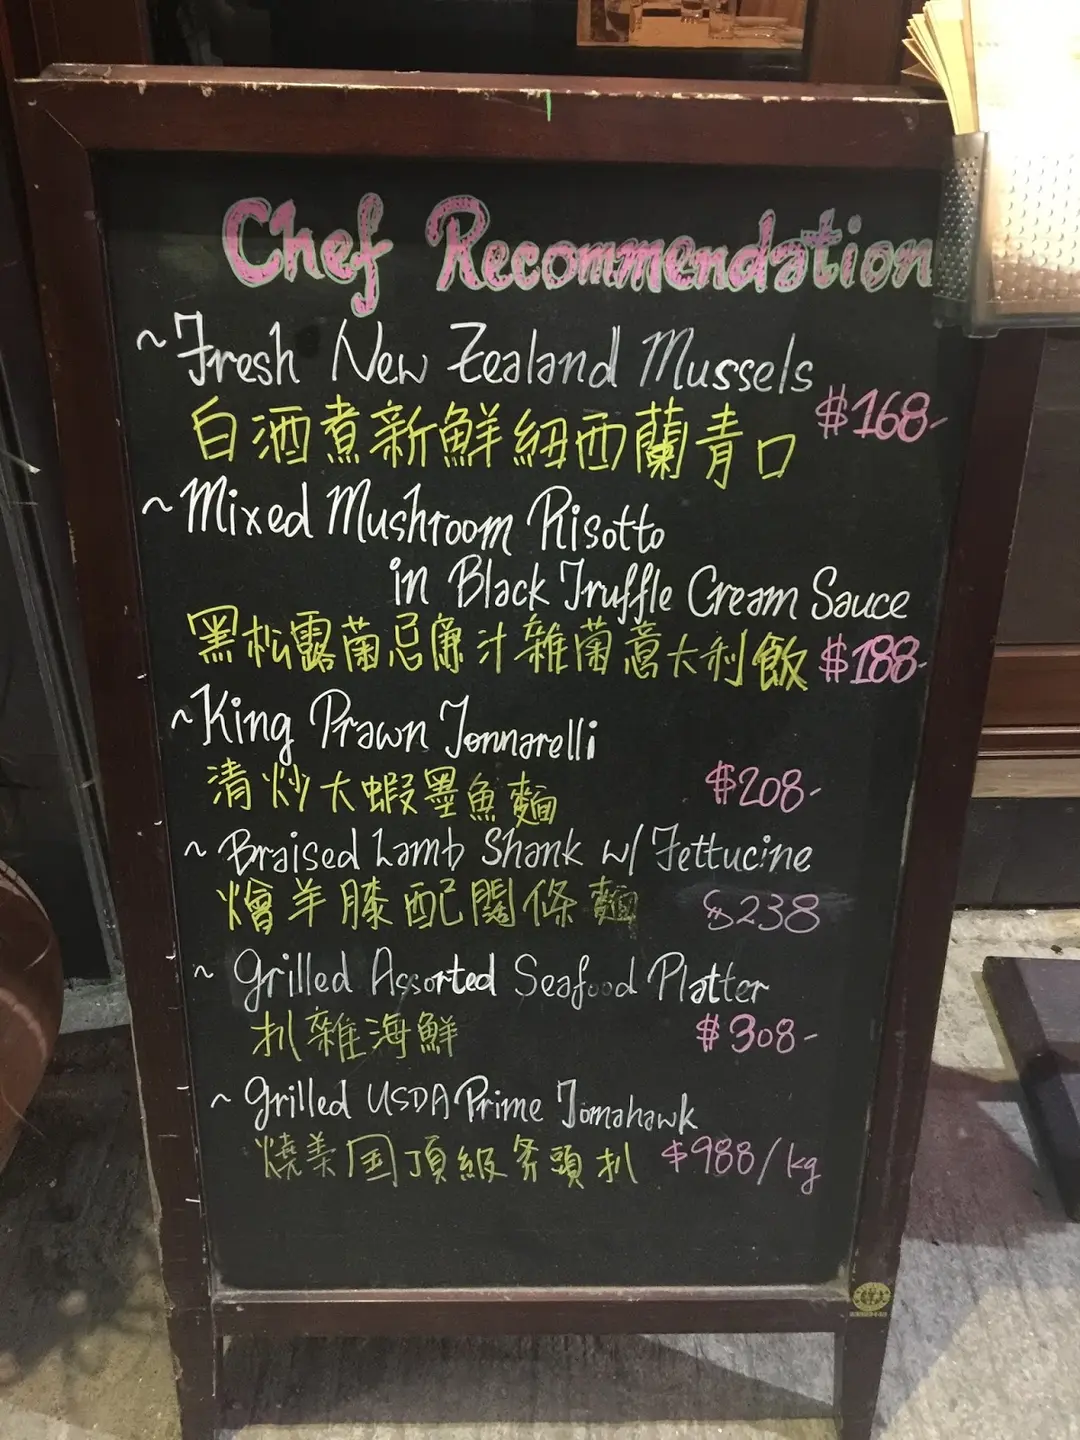 Chef Recommendation
~Fresh New Zealand Mussels
白酒煮新鮮紐西蘭青口 $168-
~Mixed Mushroom Risotto
in Black Truffle Cream Sauce
黑松露菌忌廉汁雜菌意大利飯 $188-
~King Prawn Tonnarelli
清炒大蝦墨魚麵 $208-
~Braised Lamb Shank w/ Fettucine
燴羊膝配闊條麵 $238
~Grilled Assorted Seafood Platter
扒雜海鮮 $308-
~Grilled USDA Prime Tomahawk
燒美国頂級斧頭扒 $988/kg